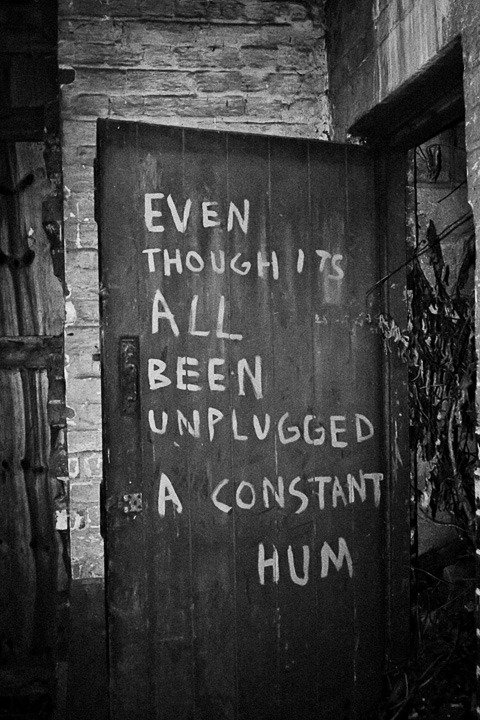 EVEN
THOUGH ITS
ALL
BEEN
UNPLUGGED
A CONSTANT
HUM